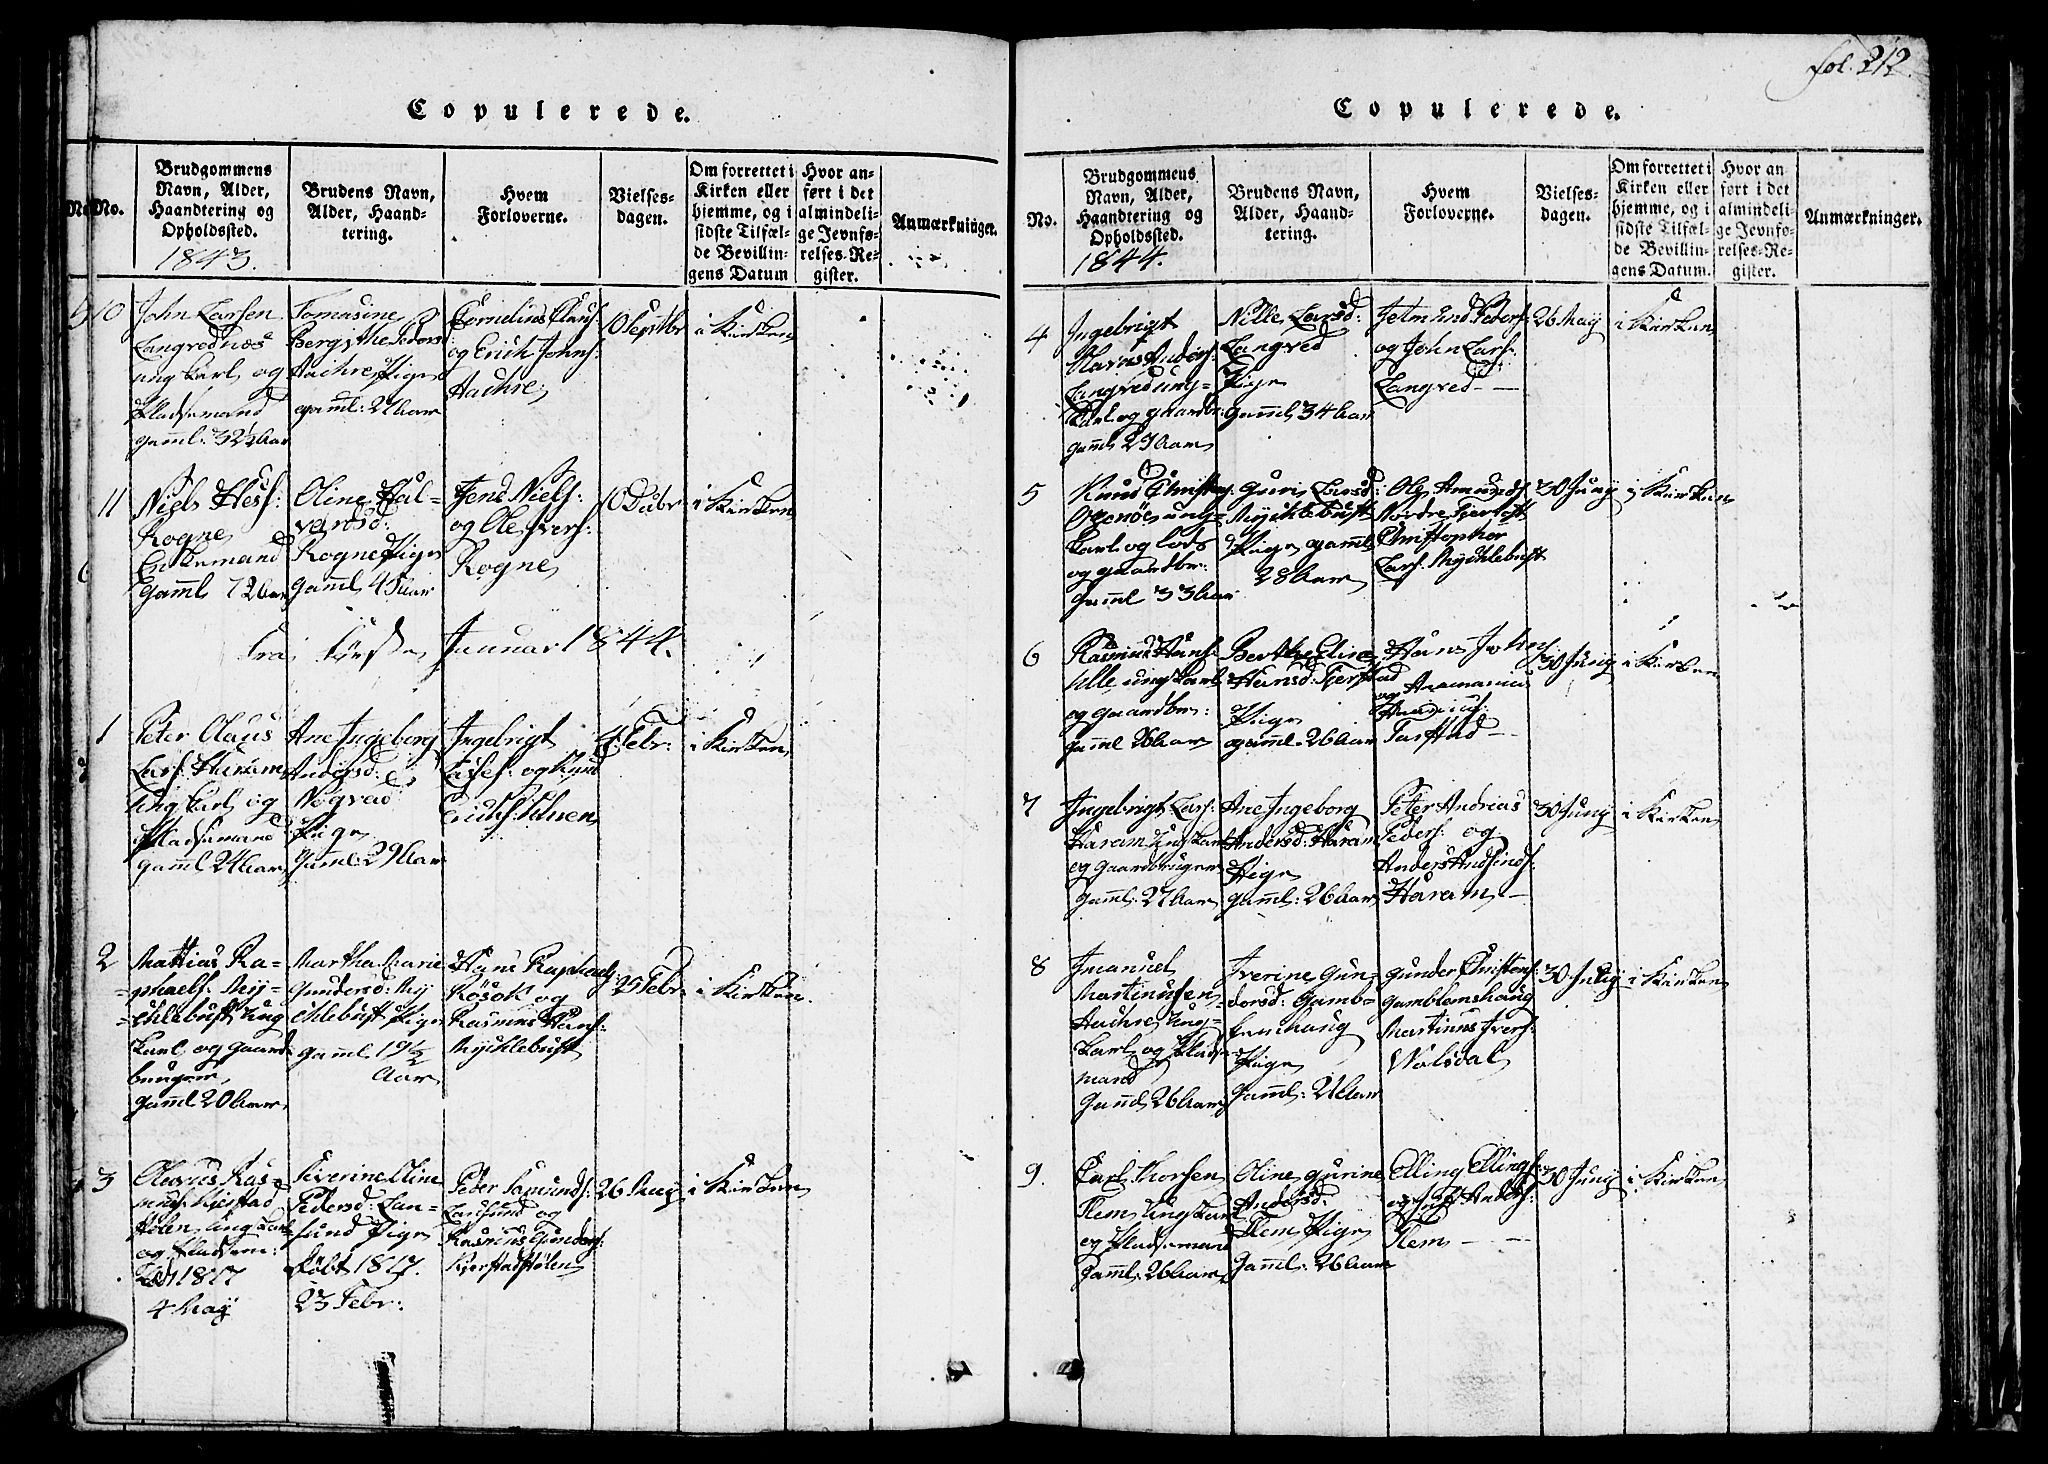 Copulerede.
No.
Brudgommens
Navn, Alder,
Haandtering og
Opholdssted.
1843.
Brudens Navn,
Alder, Haand-
tering.
Hvem
Forloverne.
Vielses-
dagen.
Om forrettet i
Kirken eller
hjemme, og i
sidste Tilfæl-
de Bevillin-
gens Datum
Hvor an-
ført i det
almindeli-
ge Jevnfø-
relses-Re-
gister.
Anmærkninger.
10
John Larsen
Langvednæs
ung karl og
pladsemand
gaml: 32½ Aar
Tomasine
Bergithe Peders
Aachre Pige
gaml: 21 Aar
Cornelius Claus:
og Erich Johns:
Aachre
10 Septbr
i Kirken
11
Niels Hess:
Rogne
Enkemand
gaml 72 Aar
Oline Hal-
vorsd:
Rogne Pige
gaml 45 Aar
Jens Niels:
og Ole Ivers:
Rogne
10
i Kirken
Fra Januar 1844.
1
Peter Claus
Lars: Haram
ung karl og
Pladsemand
gaml 24 Aar
Ane Ingeborg
Andersd:
Nogvad
Pige
gaml: 29 Aar
Ingebrigt
og Knud
Erichs:
4 Febr:
i Kirken
2
Mattias Ra-
phaels: My-
chlebust ung
karl og gaard-
bruger
gaml 20 Aar
Martha Marie
Gundersd: My
chlebust Pige
gaml 19½
Aar
Hans Raphaels:
Rösok og
Rasmus Hans:
Mychlebust
25 Febr:
i Kirken
3
Olavus Ras-
mus: Kjerstad
Holen ung karl
og Pladsem:
födt 1817
4 May
Siverine Oline
Pedersd: Lan-
sund Pige
födt 1817.
23 Febr:
Peder Samunds:
Lansund og
Rasmus Gunders:
Kjerstadhölen
26 May
i Kirken
fol. 212.
Copulerede.
No.
Brudgommens
Navn, Alder,
Haandtering og
Opholdssted.
1844.
Brudens Navn,
Alder, Haand-
tering.
Hvem
Forloverne.
Vielses-
dagen.
Om forrettet i
Kirken eller
hjemme, og i
sidste Tilfæl-
de Bevillin-
gens Datum.
Hvor an-
ført i det
almindeli-
ge Jevnfø-
relses-Re-
gister.
Anmærkninger.
4
Ingebrigt
Anders:
Langved ung-
karl og gaardbr:
gaml 27 Aar
Nille Larsd:
Langved
Pige
gaml 34 Aar
Jetmund Peders:
og John Lars:
Langved
26 May
i Kirken
5
Knud Christ
ung-
karl og Lods
og gaardbr:
gaml 33 Aar
Guri Larsd:
Mychlebust
Pige gaml
28 Aar
Ole Amunds
Nordre Fjertoft
Christopher
Lars: Mychlebust
30 Juny
i Kirken
6
Rasmus Hans:
Ulle ungkarl
og gaardbr:
gaml 26 Aar
Berthe Eline
Hansd: Fjerstad
Pige
gaml. 26 Aar
Hans
og
30 Juny
i Kirken
7
Ingebrigt Lars:
Haram ungkarl
og gaardbruger
gaml: 27 Aar
Ane Ingeborg
Andersd: Haram
Pige
gaml: 26 Aar
Peter Andrias
Peders: og
Anders
Haram
30 Juny
i Kirken
8
Imanuel
Martinusen
Aachre ung-
karl og Plads-
mand
gaml 26 Aar
Iverine Gun
dersd: Gamb-
lemshaug
Pige
gaml: 21 Aar
Gunder Christens:
Gamblemshaug
Martinus Ivers:
Walsdal
30 July
i Kirken
9.
Carl Thorsen
Flem ungkarl
og Pladsemand
gaml: 26 Aar
Oline Gurine
Andersd:
Flem Pige
gaml: 26 Aar
Elling Ellings:
og Anders:
Flem
30 Juny
i Kirken